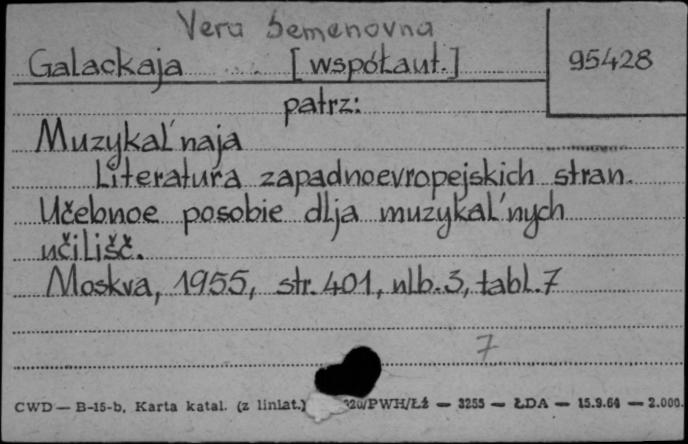 Vera Semenovna
Galackaja [współaut.] 95428
patrz:
Muzykal'naja
Literatura zapadnoevropejskich stran.
Učebnoe posobie dlja muzykal'nych
učilišč.
Moskva, 1955, str. 401, nlb. 3, tabl. 7
7
CWD — B-15-b. Karta katal. (z liniat.) /PWH/Łź — 3255 — ŁDA — 15.9.64 — 2.000.